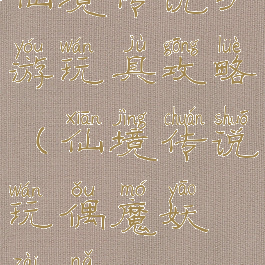 仙境传说
yóu wán jù gōng lüè
游玩具攻略
xiān jìng chuán shuō
（仙境传说
wán ǒu mó yāo
玩偶魔妖